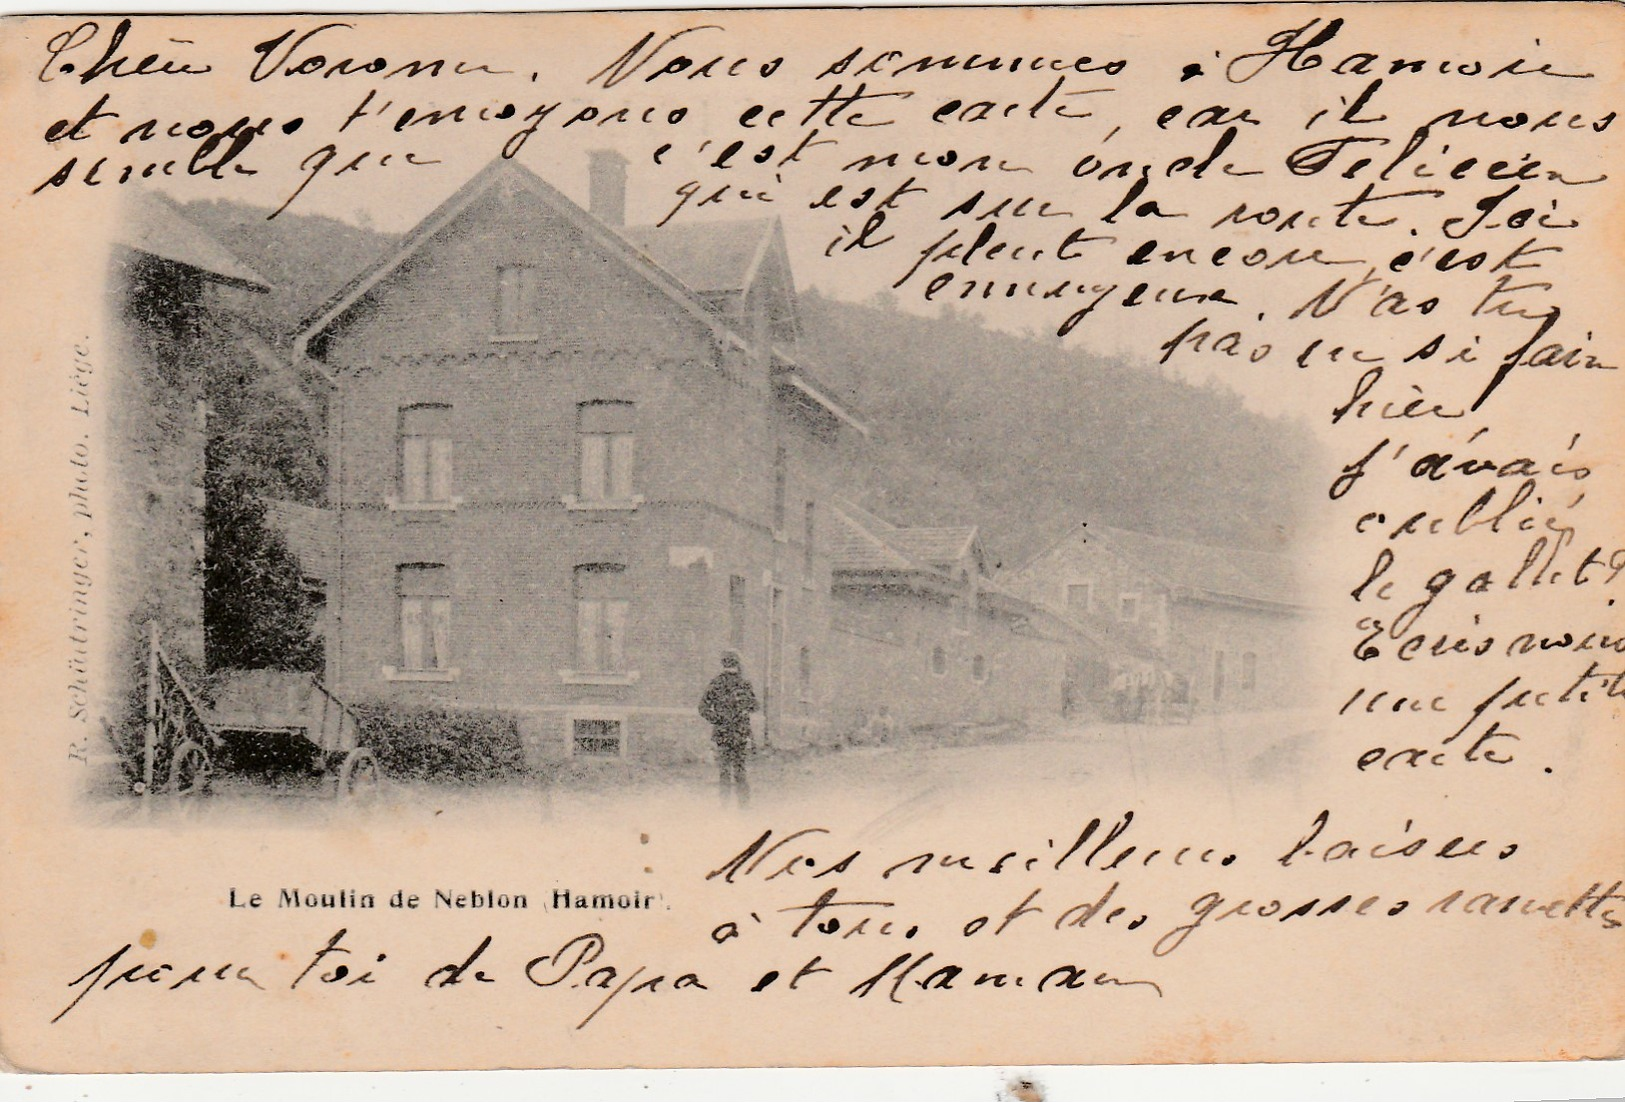 Chère Vovonne. Nous sommes à Hamoir
et nous t'envoyons cette carte, car il nous
semble que c'est mon oncle Felicien
qui est sur la route. Ici
il pleut encore, c'est
ennuyeux. N'as tu
pas eu si faim
hier
j'avais
oublié
le gallet?
Ecris nous
une petite
carte.
Nos meilleurs baisers
à tous et des grosses
pour toi de Papa et Maman
Le Moulin de Neblon (Hamoir).
R. Schütringer, photo. Liège.